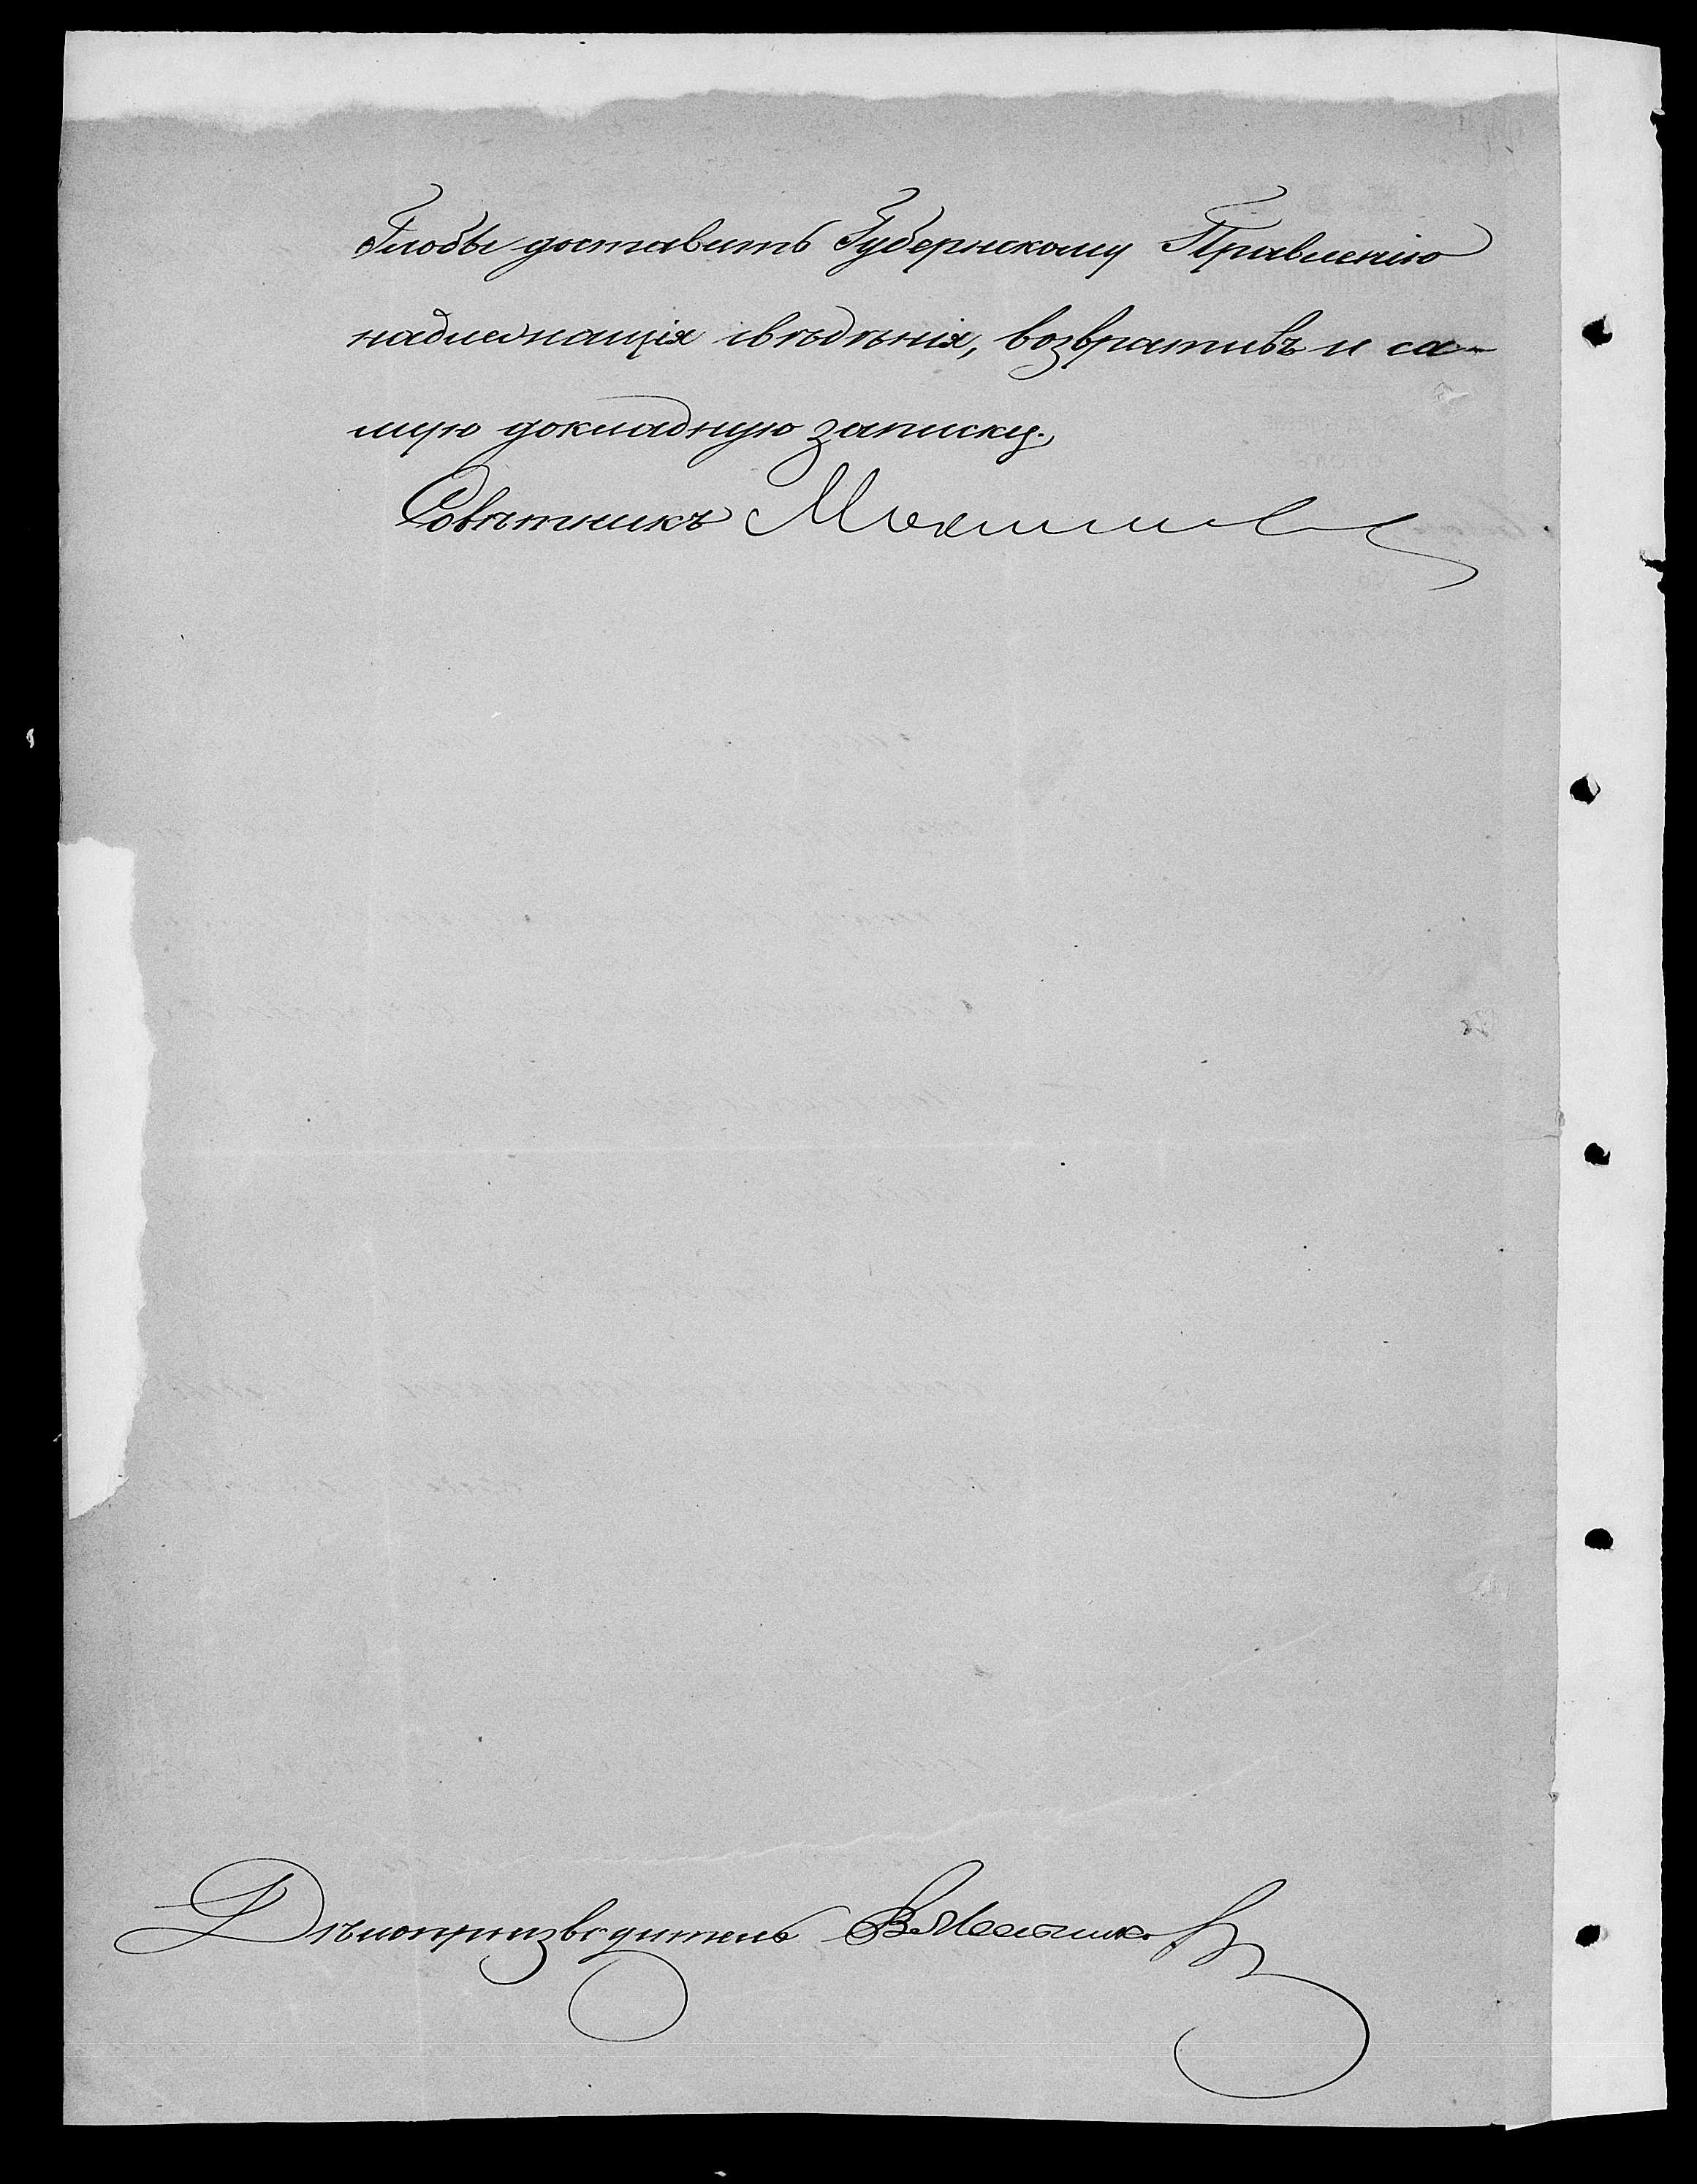 Глобы доставить Губернскому Правленію
надлежащія свѣдѣнія, возвративъ и са-
мую докладную записку.
Совѣтникъ
Дѣлопроизводитель